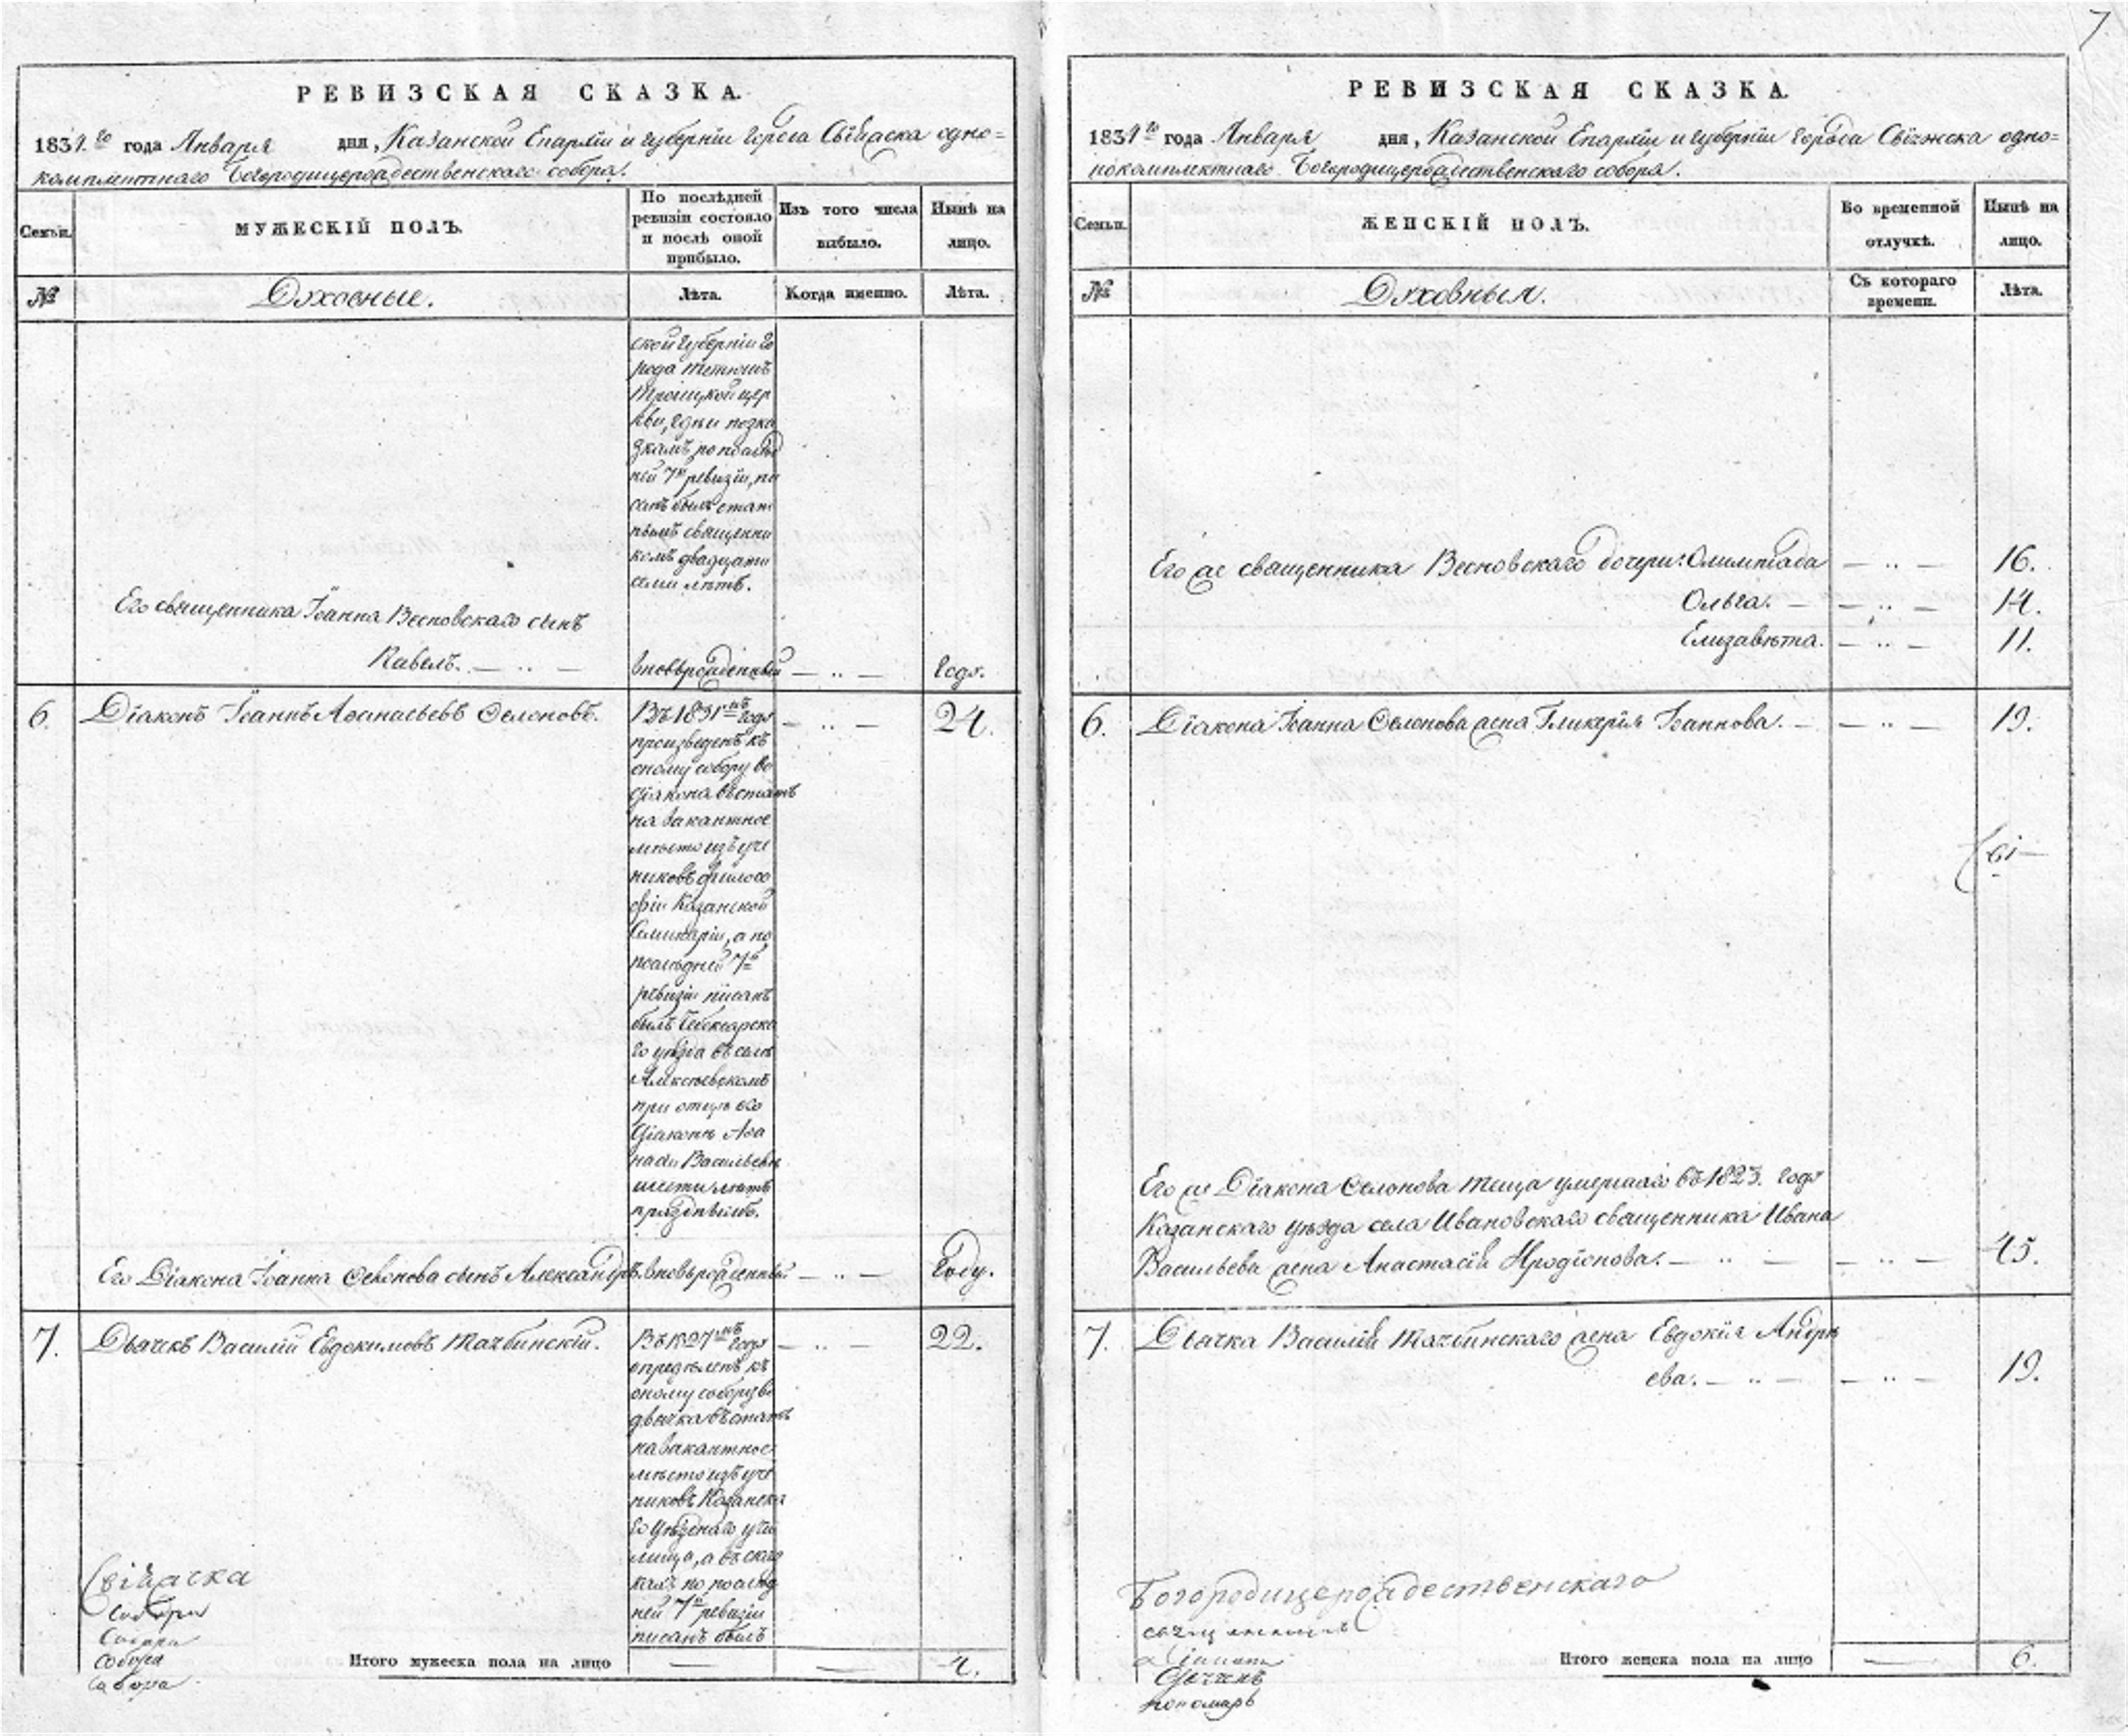 7
РЕВИЗСКАЯ СКАЗКА.
1834.го года Января дня, Казанской Епархіи и губерніи города Свіяжска одно=
комплектнаго Богородицерождественскаго собора.
Семьи.
МУЖЕСКІЙ ПОЛЪ.
По послѣдней ревизіи состояло и послѣ оной прибыло.
Изъ того числа выбыло.
Нынѣ на лицо.
№
Духовные.
Лѣта.
Когда именно.
Лѣта.
ской губерніи го
рода Тетюшъ
Троицкой цер
кви, гдѣ и по ска
зкамъ по послѣд
ней 7й ревизіи, пи
санъ былъ
священни
комъ двадцати
семи лѣтъ.
Его священника Іоанна Весновскаго сынъ
Павелъ. — .. — вновьрожденный — .. — годъ.
6. Діаконъ Іоаннъ Аѳанасьевъ — .. — 24.
Въ 1831мъ году
произведенъ къ
оному собору во
діакона въ штатъ
на вакантное
мѣсто изъ уче
никовъ филосо
фіи Казанской
Семинаріи, а по
послѣдней 7й
ревизіи писанъ
былъ Чебоксарска
го уѣзда въ селѣ
Алексѣевскомъ
при отцѣ его
діаконѣ Аѳа
насіи Васильевѣ
шести лѣтъ
празднымъ.
Его Діакона Іоанна сынъ Александръ. вновьрожденный — .. — году.
7. Дьячекъ Василій Евдокимовъ — .. — 22.
Въ 1827мъ году
опредѣленъ къ
оному собору во
дьячка въ штатъ
на вакантное
мѣсто изъ уче
никовъ Казанска
го уѣзднаго учи
лища, а въ сказ
кахъ по послѣд
ней 7й ревизіи
писанъ былъ
Свіяжска
собора
собора
собора
собора
Итого мужеска пола на лицо — — 4.
РЕВИЗСКАЯ СКАЗКА.
1834го года Января дня, Казанской Епархіи и губерніи города Свіяжска одно=
покомплектнаго Богородицерождественскаго собора.
Семьи.
ЖЕНСКІЙ ПОЛЪ.
Во временной отлучкѣ.
Нынѣ на лицо.
№
Духовныя.
Съ котораго времени.
Лѣта.
Его же священника Весновскаго дочери: Олимпіада — .. — 16.
Ольга. — — .. — 14.
Елизавѣта. — .. — 11.
6. Діакона Іоанна жена Гликерія Іоаннова. — — .. — 19.
Его же Діакона теща умершаго въ 1823. году
Казанскаго уѣзда села Ивановскаго священника Ивана
Васильева жена Анастасія Иродіонова. — .. — — .. — 45.
7. Дьячка Василія жена Евдокія Андре
ева. — .. — — .. — 19.
Богородицерождественскаго
священникъ
діаконъ
дьячекъ
пономарь
Итого женска пола на лицо — 6.